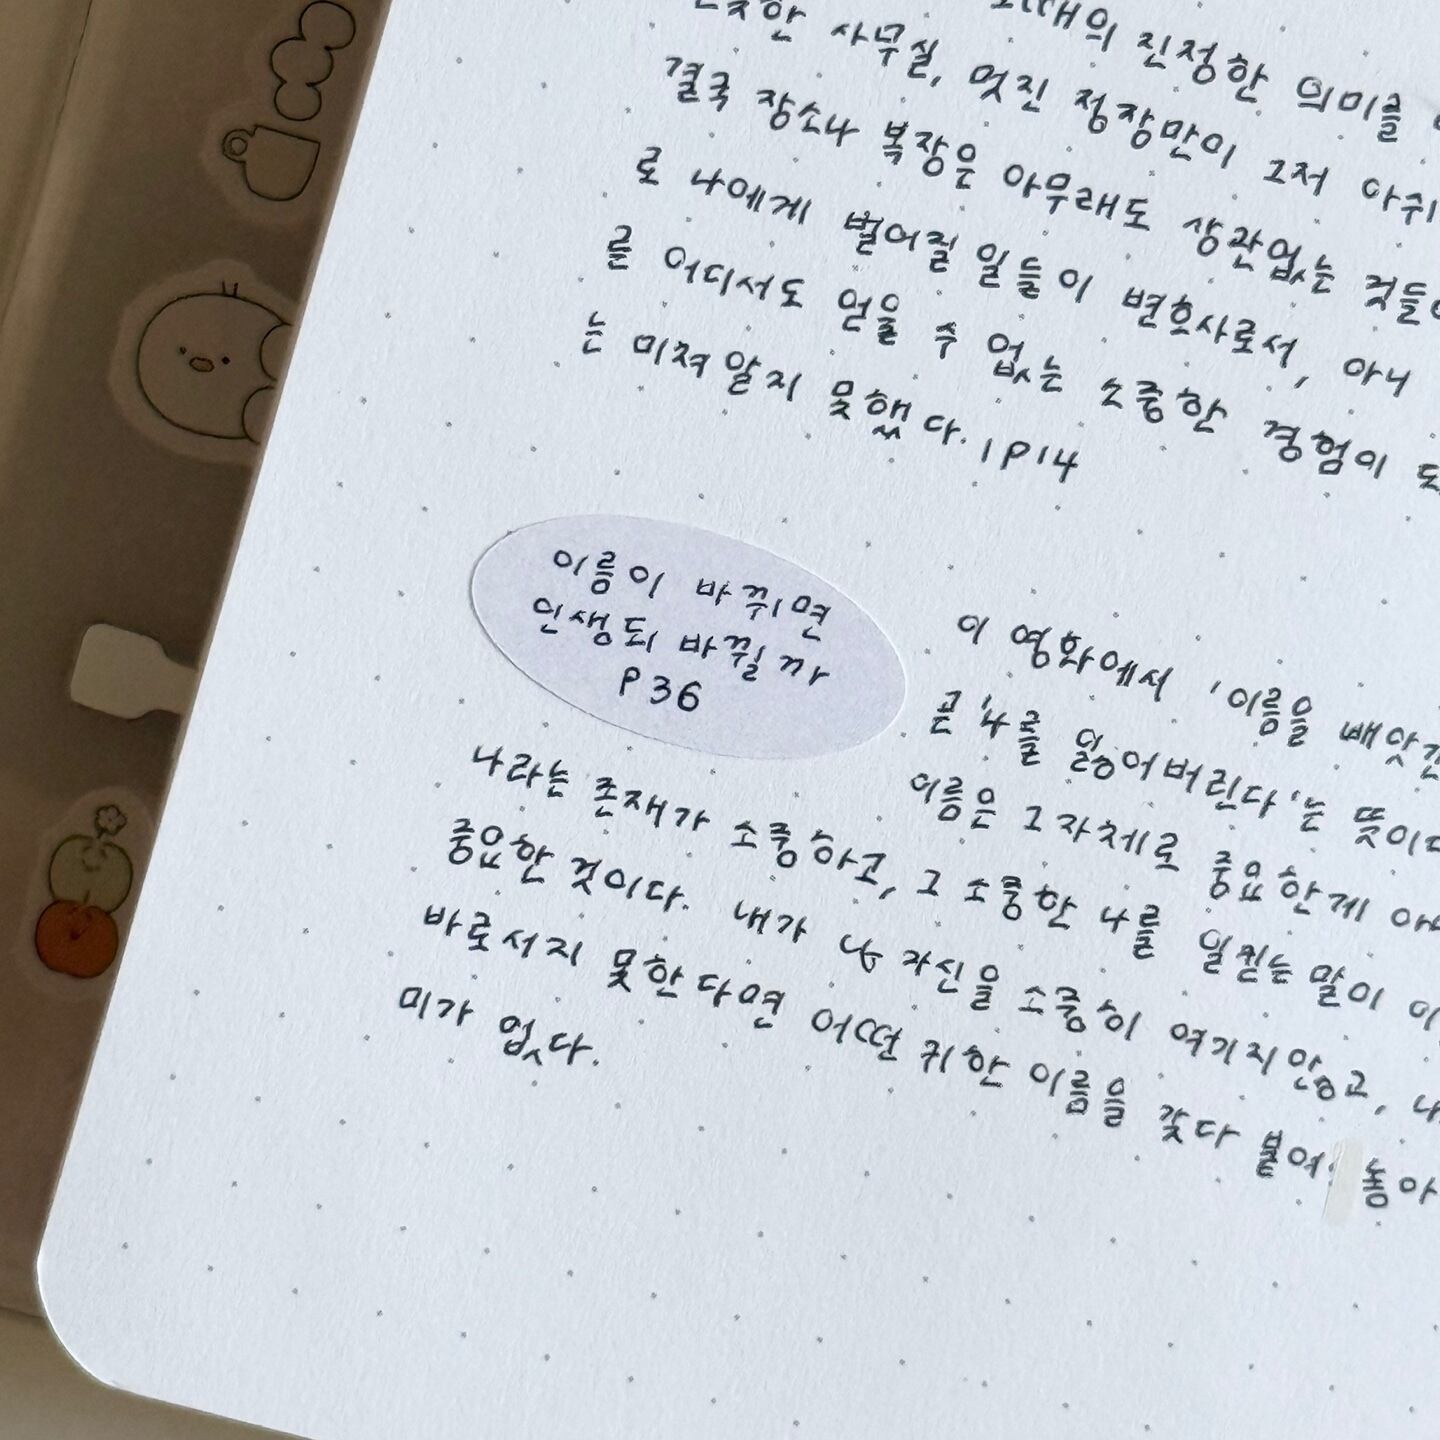 의 진정한 의미를
사무실, 멋진 정장만이 그저 아쉬
결국 장소나 복장은 아무래도 상관없는 것들
로 나에게 벌어질 일들이 변호사로서, 아니
를 어디서도 얻을 수 없는 소중한 경험이
는 미쳐 알지 못했다. 1P14
이름이 바뀌면
인생도 바뀔까
P36
이 영화에서 '이름을 빼앗긴
곧 '나를 잃어버린다'는 뜻이다
이름은 그 자체로 중요한게 아
나라는 존재가 소중하고, 그 소중한 나를 일컫는 말이
중요한 것이다. 내가 나 자신을 소중히 여기지않고,
바로서지 못한다면 어떤 귀한 이름을 갖다 붙여 놓아
미가 없다.